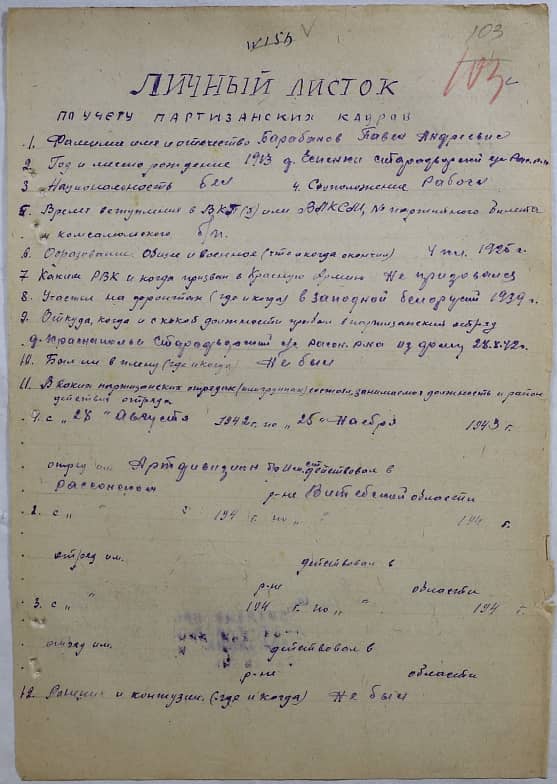 103
103
ЛИЧНЫЙ ЛИСТОК
ПО УЧЕТУ ПАРТИЗАНСКИХ КАДРОВ
1. Фамилия имя и отчество Барабанов Павел Андреевич
2. Год и место рождение 1913 д.
3. Национальность бел 4. Соцположение Рабоч
5. Время вступления в ВКП(б) или ВЛКСМ, № партийного билета
и комсомольского б/п.
6. Образование общее и военное (что и когда окончил) 4 кл. 1926 г.
7. Каким РВК и когда призван в Красную Армию Не призовался
8. Участил на фронтах (где и когда) в западной белорусии 1939 г.
9. Откуда, когда и с какой должности прибыл в партизанский отряд
из дому 28.8.42 г.
10. Был ли в плену (где и когда) Не был
11. В каких партизанских отрядах (или группах) состоял, занимаемая должность и район
действия отряда.
1. с „28" Августя 1942 г. по „25" Наября 1943 г.
отряд им. Артдивизион действовал в
рассонском р-не Витебской области
2. с „ " 194 г. по „ " 194 г.
отряд им. действовал в
р-не области
3. с „ " 194 г. по „ " 194 г.
отряд им. действовал в
р-не области
12. Ранения и контузии (где и когда) Не был